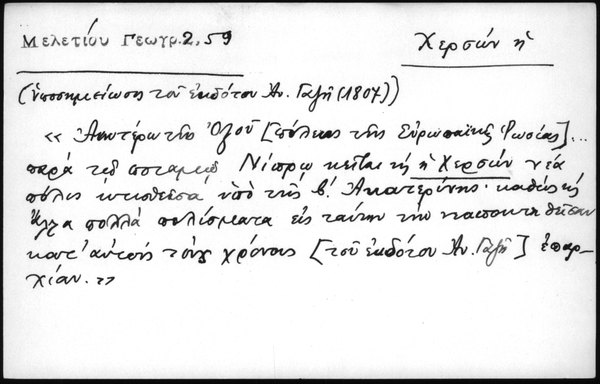 Μελετίου Γεωγρ. 2, 59
Χερσών ἡ
(ὑποσημείωσις τοῦ ἐκδότου Ἀν. Γαζῆ (1807))
« Ἀνωτέρω τοῦ Ὀζοῦ [πόλεως τῆς Εὐρωπαϊκῆς Ῥωσίας]...
παρά τῷ ποταμῷ Νίπρῳ κεῖται καὶ ἡ Χερσών νέα
πόλις κτισθεῖσα ὑπό τῆς β΄. Αἰκατερίνης· καθώς καὶ
ἄλλα πολλά πολίσματα εἰς ταύτην τήν
κατ' αὐτούς τούς χρόνους [τοῦ ἐκδότου Ἀν. Γαζῆ] ἐπαρ-
χίαν. »